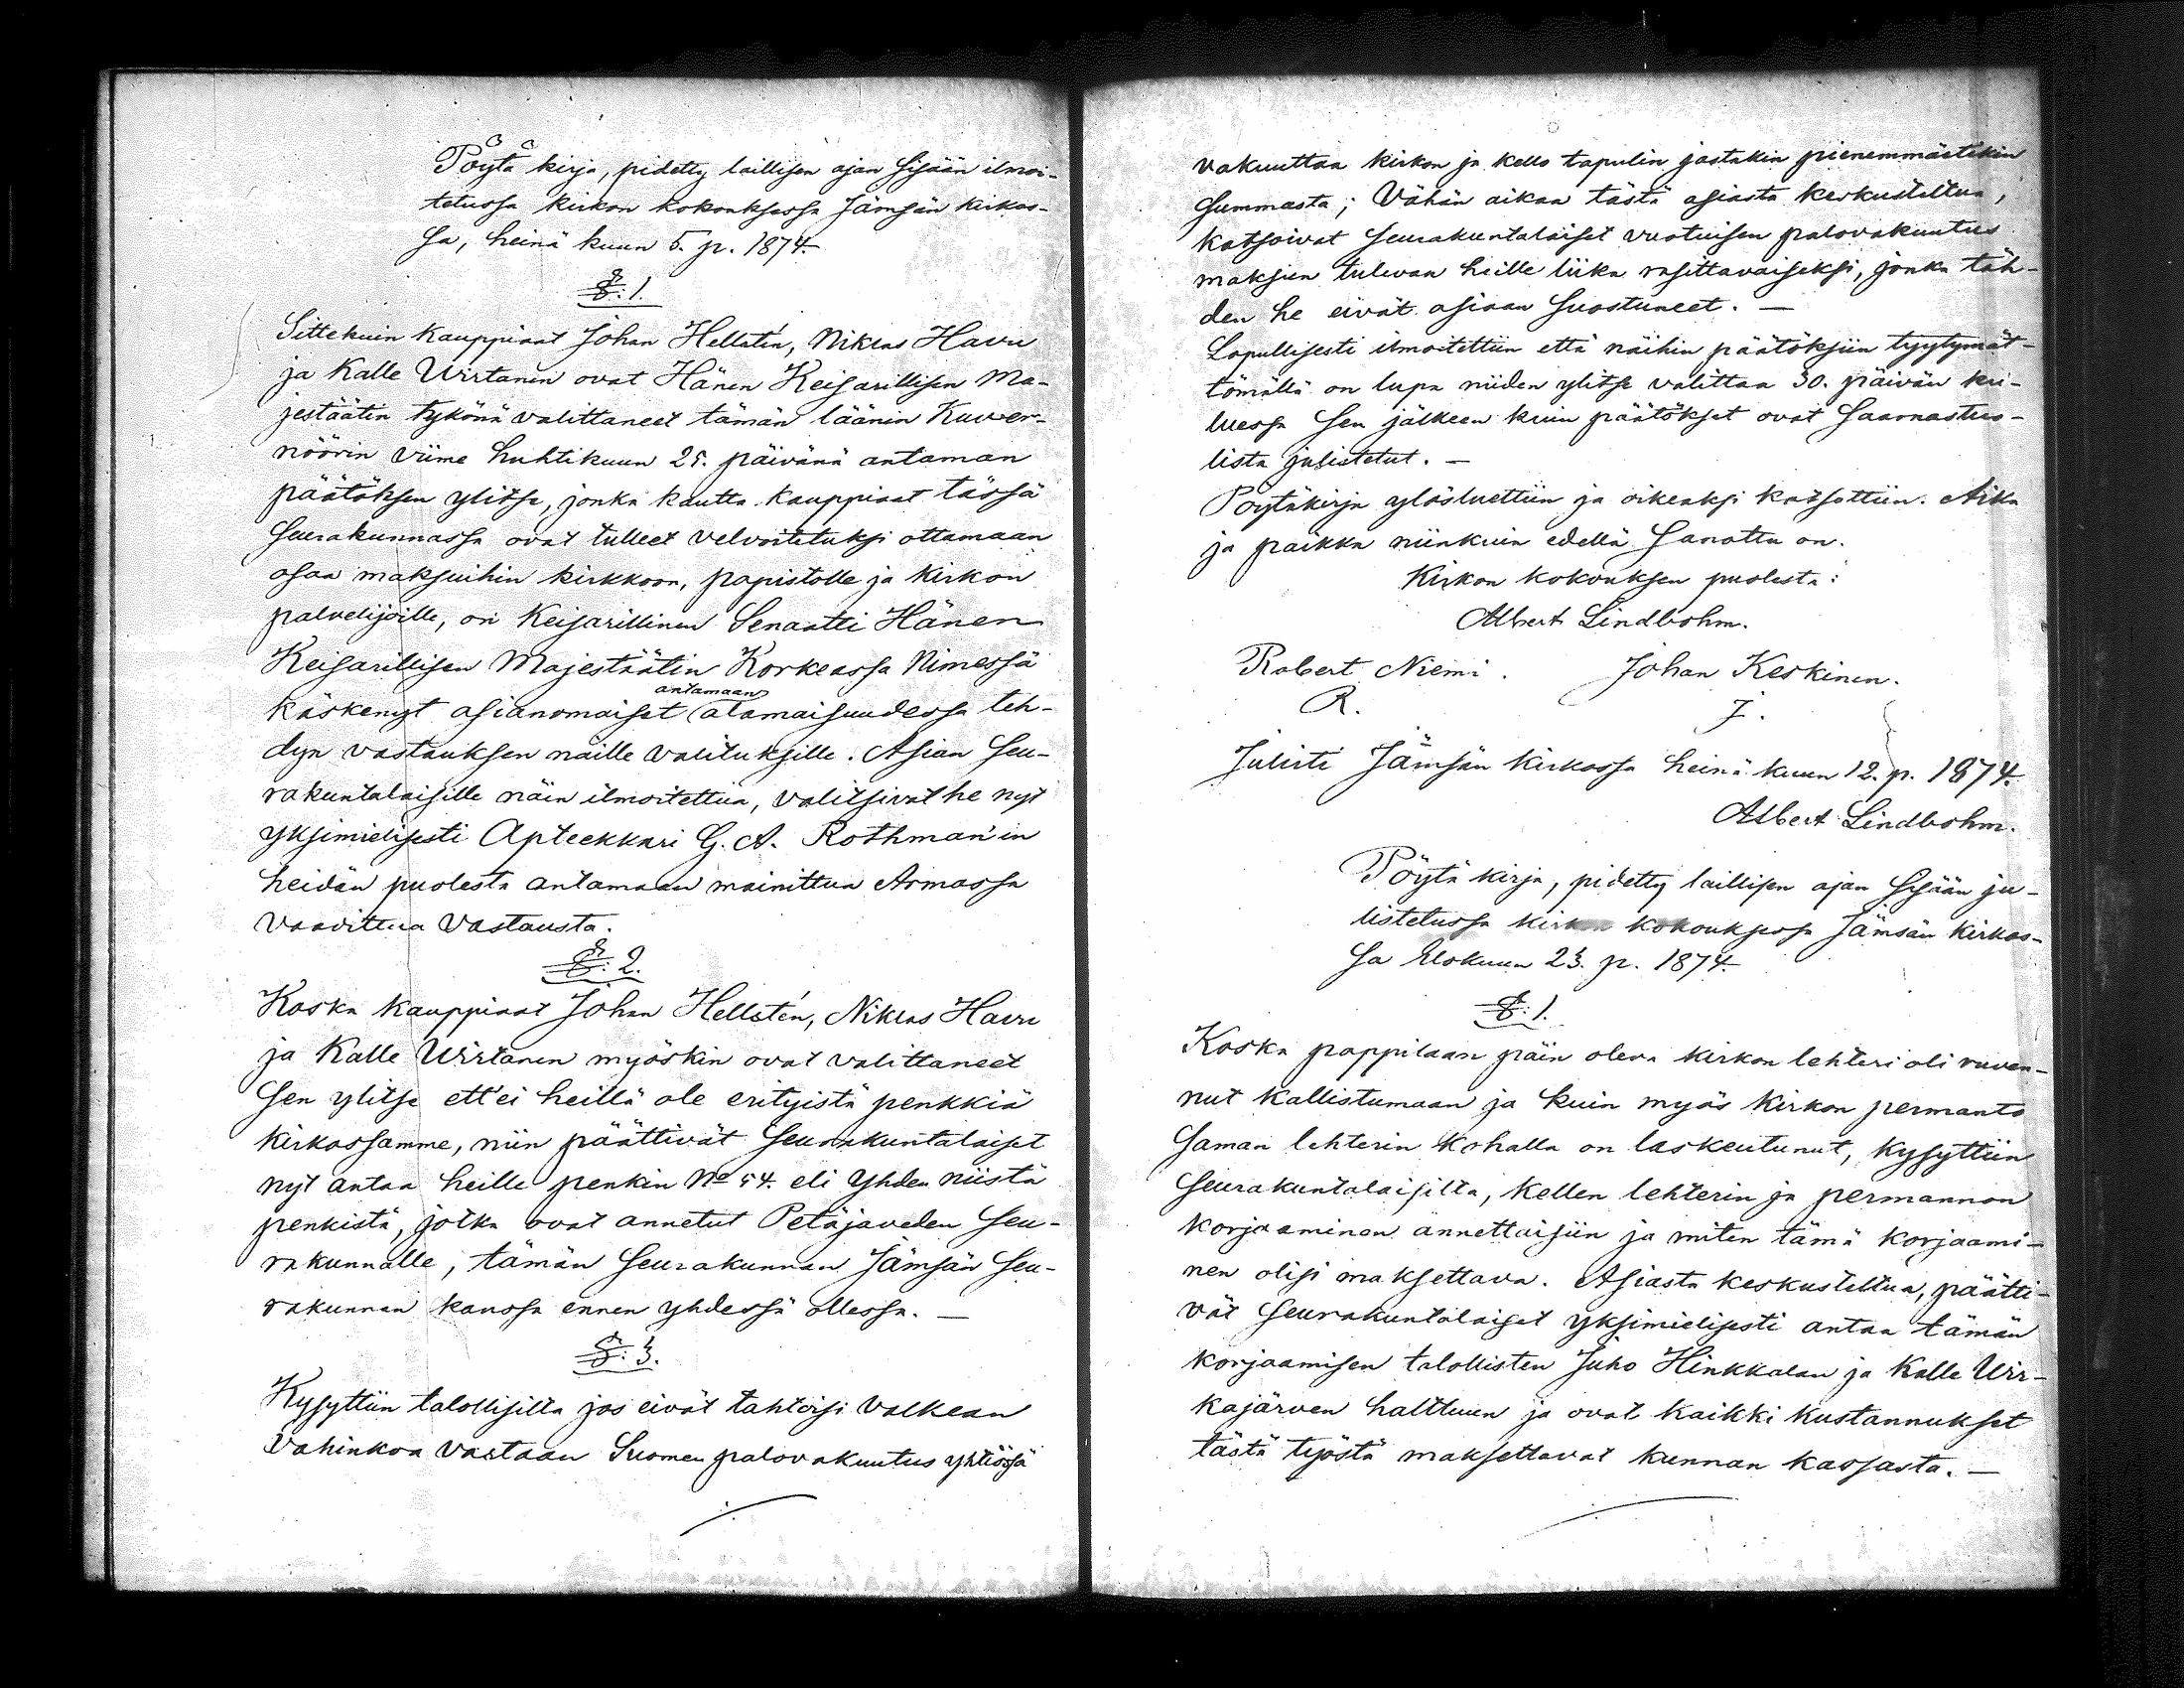 Pöytä kirja, pidetty laillisen ajan sisään ilmoi-
tetussa kirkon kokouksessa Jämsän kirkos-
sa, heinä kuun 5. p. 1874.
§: 1.
Sittekuin kauppiaat Johan Hellstén, Niklas Havu
ja Kalle Wirtanen ovat Hänen Keisarillisen Ma-
jestäätin tykönä valittaneet tämän läänin Kuver-
nöörin viime huhtikuun 25. päivänä antaman
päätöksen ylitse, jonka kautta kauppiaat tässä
seurakunnassa ovat tulleet velvoitetuksi ottamaan
osaa maksuihin kirkkoon, papistolle ja kirkon
palvelijoille, on Keisarillinen Senaatti Hänen
Keisarillisen Majestäätin Korkeassa Nimessä
käskenyt asianomaiset antamaan alamaisuudessa teh-
dyn vastauksen näille valituksille. Asian seu-
rakuntalaisille näin ilmoitettua, valitsivat he nyt
yksimielisesti Apteekkari G. A. Rothman'in
heidän puolesta antamaan mainittua Armossa
vaadittua vastausta.
§: 2.
Koska kauppiaat Johan Hellstén, Niklas Havu
ja Kalle Wirtanen myöskin ovat valittaneet
sen ylitse ett'ei heillä ole erityistä penkkiä
kirkossamme, niin päättivät seurakuntalaiset
nyt antaa heille penkin No 54. eli yhden niistä
penkistä, jotka ovat annetut Petäjäveden seu-
rakunnalle, tämän seurakunnan Jämsän seu-
rakunnan kanssa ennen yhdessä ollessa. —
§: 3.
Kysyttiin talollisilta jos eivät tahtoisi valkean
vahinkoa vastaan Suomen palovakuutus yhtiössä
vakuuttaa kirkon ja kello tapulin jostakin pienemmästäkin
summasta; Vähän aikaa tästä asiasta keskusteltua,
katsoivat seurakuntalaiset vuotuisen palovakuutus
maksun tulevan heille liika rasittavaiseksi, jonka täh-
den he eivät asiaan suostuneet. —
Lopullisesti ilmoitettiin että näihin päätöksiin tyytymät-
tömällä on lupa niiden ylitse valittaa 30. päivän ku-
luessa sen jälkeen kuin päätökset ovat saarnastuo-
lista julistetut. —
Pöytäkirja ylösluettiin ja oikeaksi katsottiin. Aika
ja paikka niinkuin edellä sanottu on.
Kirkon kokouksen puolesta:
Albert Lindbohm.
Robert Niemi. Johan Keskinen.
R. J.
Julisti Jämsän kirkossa heinä kuun 12. p. 1874.
Albert Lindbohm.
Pöytä kirja, pidetty laillisen ajan sisään ju-
listetussa kirkon kokouksessa Jämsän kirkos-
sa Elokuun 23. p. 1874.
§: 1.
Koska pappilaan päin oleva kirkon lehteri oli ruven-
nut kallistumaan ja kuin myös kirkon permanto
saman lehterin kohalla on laskeutunut, kysyttiin
seurakuntalaisilta, kellen lehterin ja permannon
korjaaminen annettaisiin ja miten tämä korjaami-
nen olisi maksettava. Asiasta keskusteltua, päätti-
vät seurakuntalaiset yksimielisesti antaa tämän
korjaamisen talollisten Juho Hinkkalan ja Kalle Wir-
kajärven halttuun ja ovat kaikki kustannukset
tästä työstä maksettavat kunnan kassasta. —